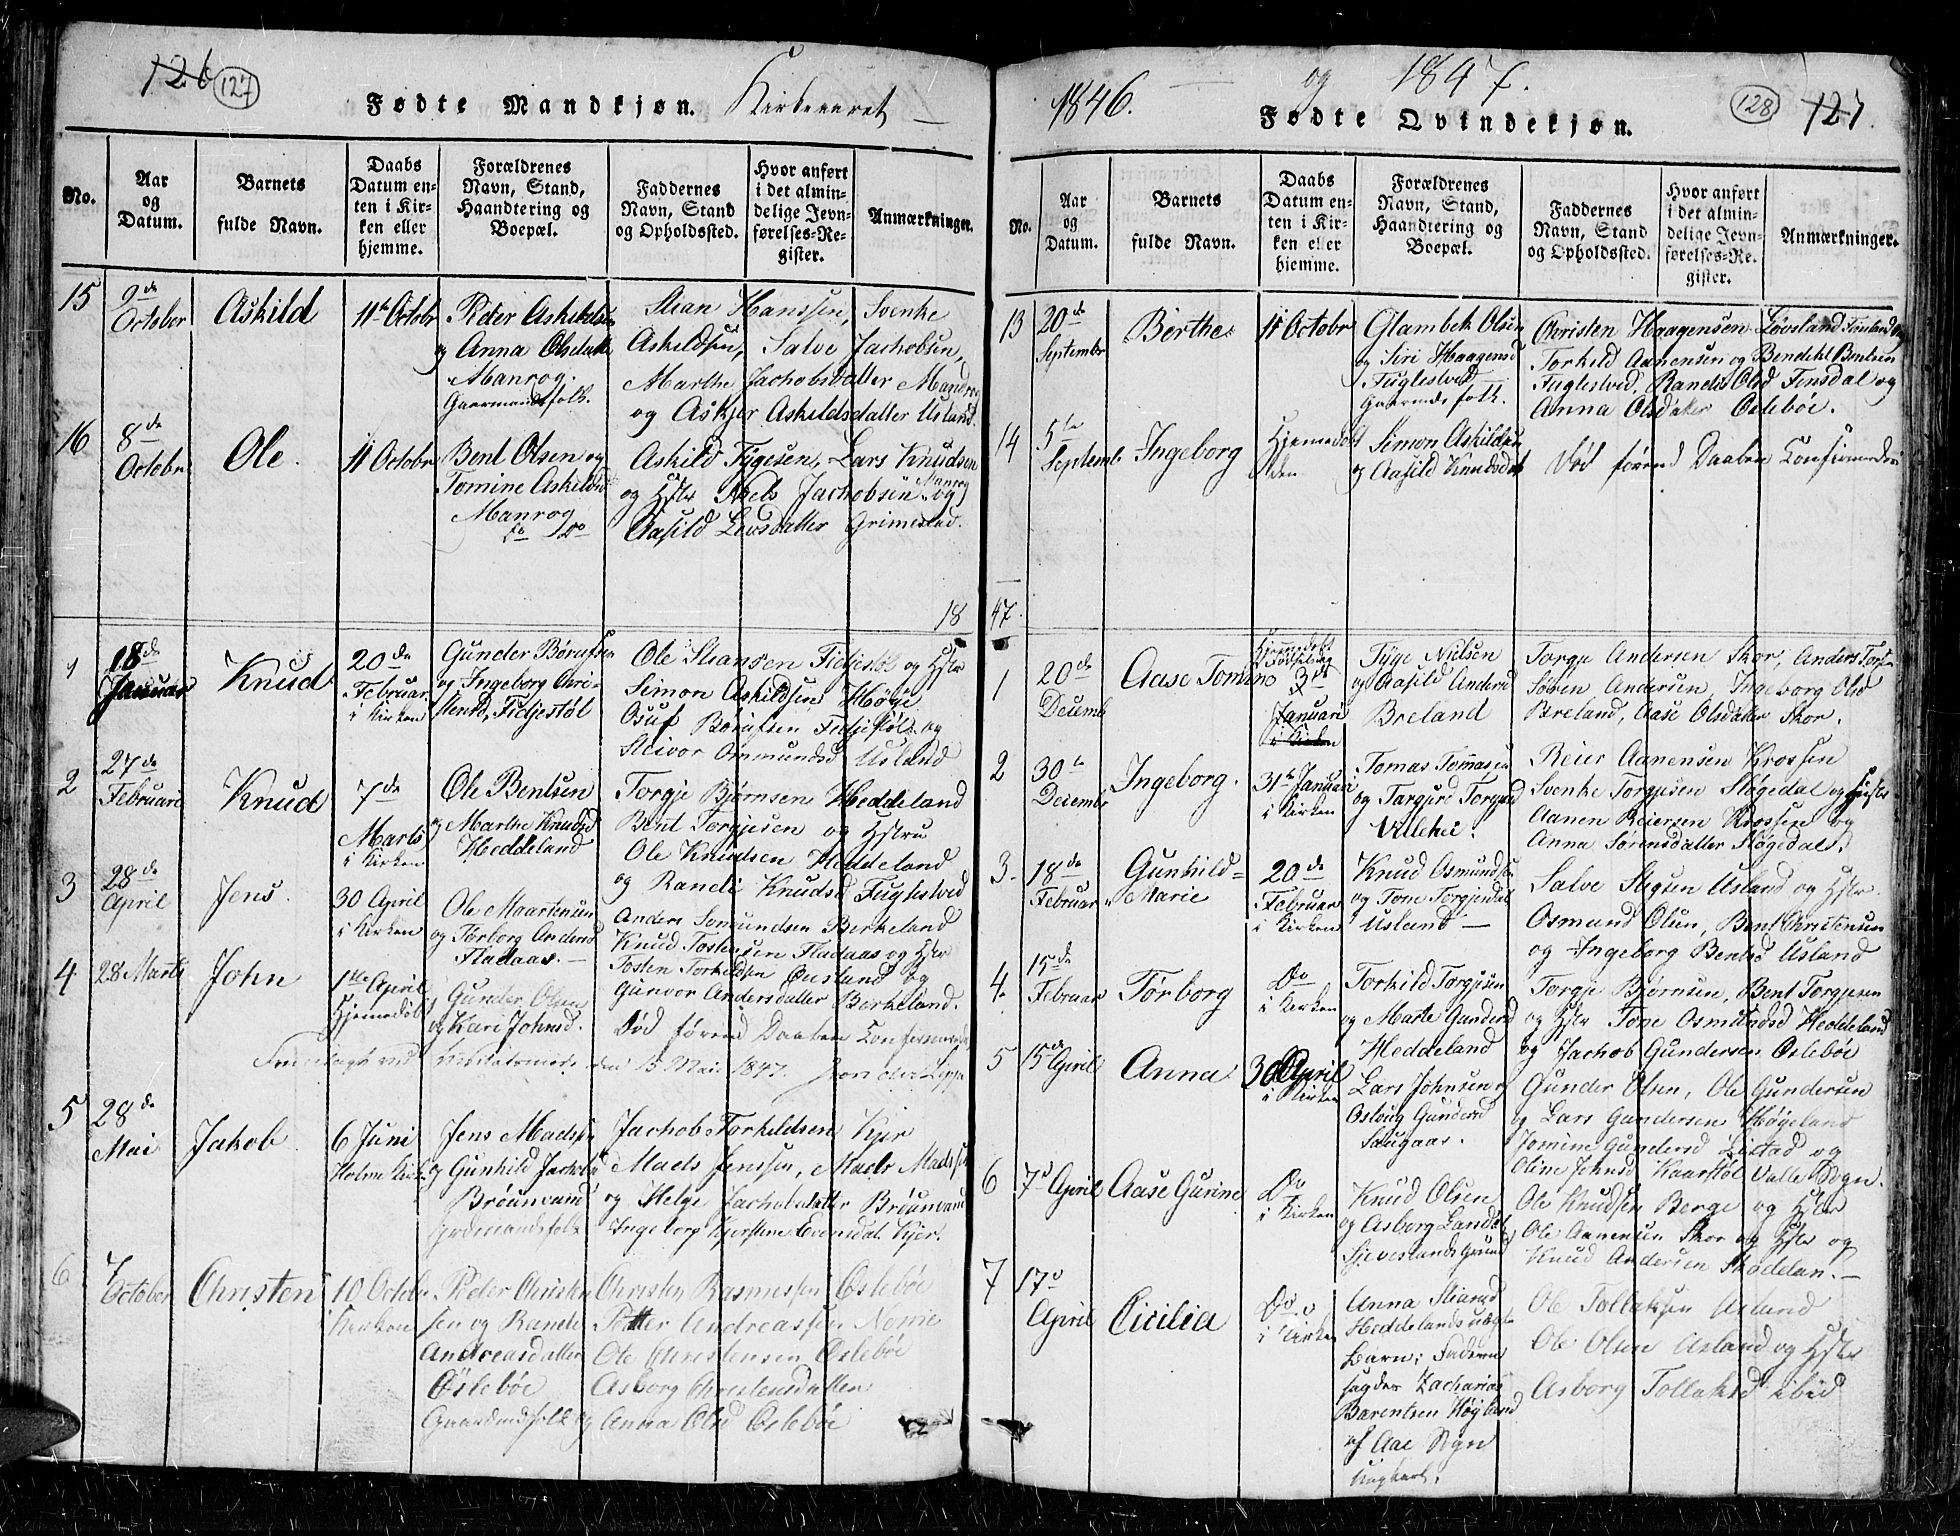 126 127
Fødte Mandkjøn. Kirkeaaret
No.
Aar og Datum.
Barnets fulde Navn.
Daabs Datum enten i Kirken eller hjemme.
Forældrenes Navn, Stand, Haandtering og Boepæl.
Faddernes Navn, Stand og Opholdssted.
Hvor anført i det almindelige Jevnførelses-Register.
Anmærkninger.
15
9de October
Askild
11te Octobr
Peder Askildsen
og Anna Olsdatter
Manrog.
Gaarmandsfolk.
Stian Hanssen, Svenke
Askildsen, Salve Jachobsen,
Marthe Jachobsdatter Manrog
og Askjer Askildsdatter Usland.
16
8de Octobr
Ole.
11 Octobr
Bent Olsen og
Tomine Askildsd
Manrog
do do
Askild Tygesen, Lars Knudsen
og Hstr Niels Jachobsen Manrog og
Aasild Levsdatter Grimestad.
18
1
18de Januar
Knud
20de Februar i Kirken
Gunder Børufsen
og Ingeborg Christensd, Fidjestøl
Ole Stiansen Fidjestøl og Hstr
Simon Askildsen Høgje
Osuf Børufsen Fidjestøl og
Steivor Ommundsd Usland
2
27de Februari
Knud
7de Marts i Kirken
Ole Bentsen
og Marthe Knudsd
Heddeland
Torgje Bjørnsen Heddeland
Bent Torgjesen og Hstru
Ole Knudsen Heddeland
og Randi Knudsd Fuglestved
3
28de April
Jens.
30 April i Kirken
Ole Maartensen
og Torborg Andersd
Fladaas.
Anders Somundsen Berkeland
Knud Tostensen Fladaas og Hstr
Tosten Torkildsen Ousland og
Gunvor Andersdatter Berkeland.
4
28 Marts
John
1ste April Hjemedøbt
Gunder Olsen
og Kari Johnsd.
Død førend Daaben Confirmerede
Fremlagt ved Visitatsen den 15 Mai 1847.
5
28de Mai
Jakob
6 Juni
Holme Kirke
Jens Madsen
og Gunhild Jachobsd
Brøunvand
Grdmandsfolk
Jachob Torkildsen Kjer
Mads Jenssen, Mads Madssen
og Helge Jachobsdatter Brøunvand
Ingeborg Kjerstine Evensdat. Kjer.
6
7 October
Christen
10 October
Kirken
Peder Christensen og Randi
Andreasdatter
Oslebøe
Gaardmdsfolk
Christen Rasmussen Oslebøe
Petter Andreassen Nome
Ole Christensen Oslebøe
Asborg Christensdatter
og Anna Olsd Oslebøe
1846. og 1847.
Fødte Qvindekjøn.
128 127.
No.
Aar og Datum.
Barnets fulde Navn.
Daabs Datum enten i Kirken eller hjemme.
Forældrenes Navn, Stand, Haandtering og Boepæl.
Faddernes Navn, Stand og Opholdssted.
Hvor anført i det almindelige Jevnførelses-Register.
Anmærkninger.
13
20de Septembr
Berthe
11 Octobr
Glambek Olsen
og Siri Haagensd
Fuglestved
Gaarmdsfolk.
Christen Haagensen Løvsland
Torkild Aanensen og Bendikt Bentsen
Fuglestved, Randi Olsd Fensdal og
Anna Olsdatter Oslebøe.
14
5te Septemb
Ingeborg
Hjemedøbt
Simon Askildsen
og Aasild Knudsdat
Død førend Daaben Confirmeredes
47.
1
20de Decemb
Aase Tomine
3de Januari i Kirken
Tyge Nielsen
og Aasild Andersd
Breland
Torgje Andersen Skor, Anders
Søren Andersen, Ingeborg Olsd
Breland, Aase Olsdatter Skor.
2
30te Decembr
Ingeborg.
31te Januari i Kirken
Tomas Tomasen
og Targjerd Torgjusd
Reier Aanensen Krossen
Svenke Torgjesen Støgedal og Hustr
Aanen Reiersen Krossen og
Anna Sørensdatter Støgedal.
3.
18de Februar
Gunhild-Marie
20de Februar i Kirken
Knud Osmundsen
og Tone Torgjesdat
Usland
Salve Stigsen Usland og Hstr.
Osmund Olsen, Bent Christensen
og Ingeborg Bentsd Usland
4.
15de Februar
Torborg
Do i Kirken
Torkild Torgjesen
og Marte Gundersd
Heddeland
Torgje Bjørnsen, Bent Torgjesen
og Hstr Tone Osmundsd Heddeland
og Jachob Gundersen Oslebøe
5
15de April
Anna
30 April i Kirken
Lars Johnsen og
Osborg Gundersd
Saugaas.
Gunder Olsen, Ole Gundersen
og Lars Gundersen Høgeland
Jomine Gundersd Listad og
Oline Johnsd Kaarstøl Valle Sogn.
6
7de April
Aase Gurine
Do i Kirken
Knud Olsen
og Asborg Larsdat
Sjeveslands Grund
Ole Knudsen Berge og Hstr
Ole Aanensen Skor og Hstr og
Knud Andersen Stødelan.
7
17de April
Cicilia
Do i Kirken
Anna Stiansd
Heddelands uægte
Barn; Faderen
sagdes Zacharias
Barentsen Høyland
af Aae Sogn
Ungkarl.
Ole Tollaksen Asland
Ole Olsen Asland og Hstr
Asborg Tollaksd ibid